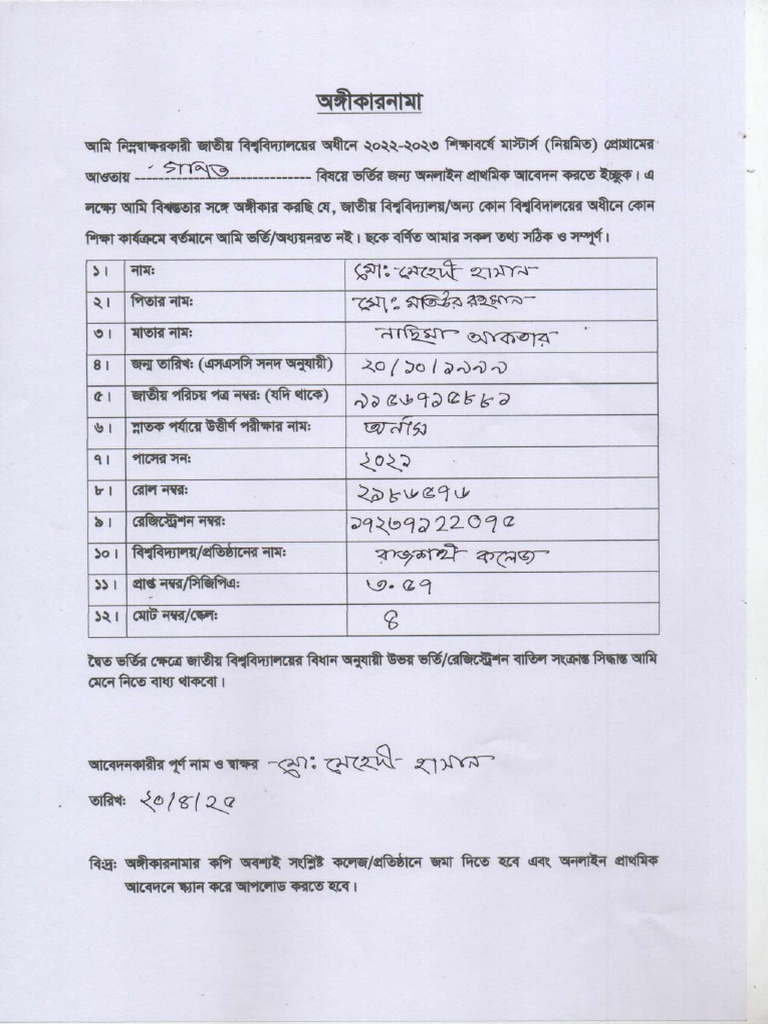 অঙ্গীকারনামা
আমি নিম্নস্বাক্ষরকারী জাতীয় বিশ্ববিদ্যালয়ের অধীনে ২০২২-২০২৩ শিক্ষাবর্ষে মাস্টার্স (নিয়মিত) প্রোগ্রামের
আওতায় গণিত বিষয়ে ভর্তির জন্য অনলাইন প্রাথমিক আবেদন করতে ইচ্ছুক। এ
লক্ষ্যে আমি বিশ্বস্ততার সঙ্গে অঙ্গীকার করছি যে, জাতীয় বিশ্ববিদ্যালয়/অন্য কোন বিশ্ববিদালয়ের অধীনে কোন
শিক্ষা কার্যক্রমে বর্তমানে আমি ভর্তি/অধ্যয়নরত নই। ছকে বর্ণিত আমার সকল তথ্য সঠিক ও সম্পূর্ণ।
১। নামঃ মোঃ মেহেদী হাসান
২। পিতার নামঃ মোঃ মতিউর রহমান
৩। মাতার নামঃ নাছিমা আকতার
৪। জন্ম তারিখঃ (এসএসসি সনদ অনুযায়ী) ২০/১০/১৯৯৯
৫। জাতীয় পরিচয় পত্র নম্বরঃ (যদি থাকে) ৯১৫৬৭১৫৪৪১
৬। স্নাতক পর্যায়ে উত্তীর্ণ পরীক্ষার নামঃ অর্নাস
৭। পাসের সনঃ ২০২১
৮। রোল নম্বরঃ ২১৪৬৫৭৬
৯। রেজিস্ট্রেশন নম্বরঃ ১৭২৩৭১২২০৭৫
১০। বিশ্ববিদ্যালয়/প্রতিষ্ঠানের নামঃ রাজশাহী কলেজ
১১। প্রাপ্ত নম্বর/সিজিপিএঃ ৩.৫৭
১২। মোট নম্বর/স্কেলঃ ৪
দ্বৈত ভর্তির ক্ষেত্রে জাতীয় বিশ্ববিদ্যালয়ের বিধান অনুযায়ী উভয় ভর্তি/রেজিস্ট্রেশন বাতিল সংক্রান্ত সিদ্ধান্ত আমি
মেনে নিতে বাধ্য থাকবো।
আবেদনকারীর পূর্ণ নাম ও স্বাক্ষর মোঃ মেহেদী হাসান
তারিখঃ ২০/৪/২৫
বিঃদ্রঃ অঙ্গীকারনামার কপি অবশ্যই সংশ্লিষ্ট কলেজ/প্রতিষ্ঠানে জমা দিতে হবে এবং অনলাইন প্রাথমিক
আবেদনে স্ক্যান করে আপলোড করতে হবে।